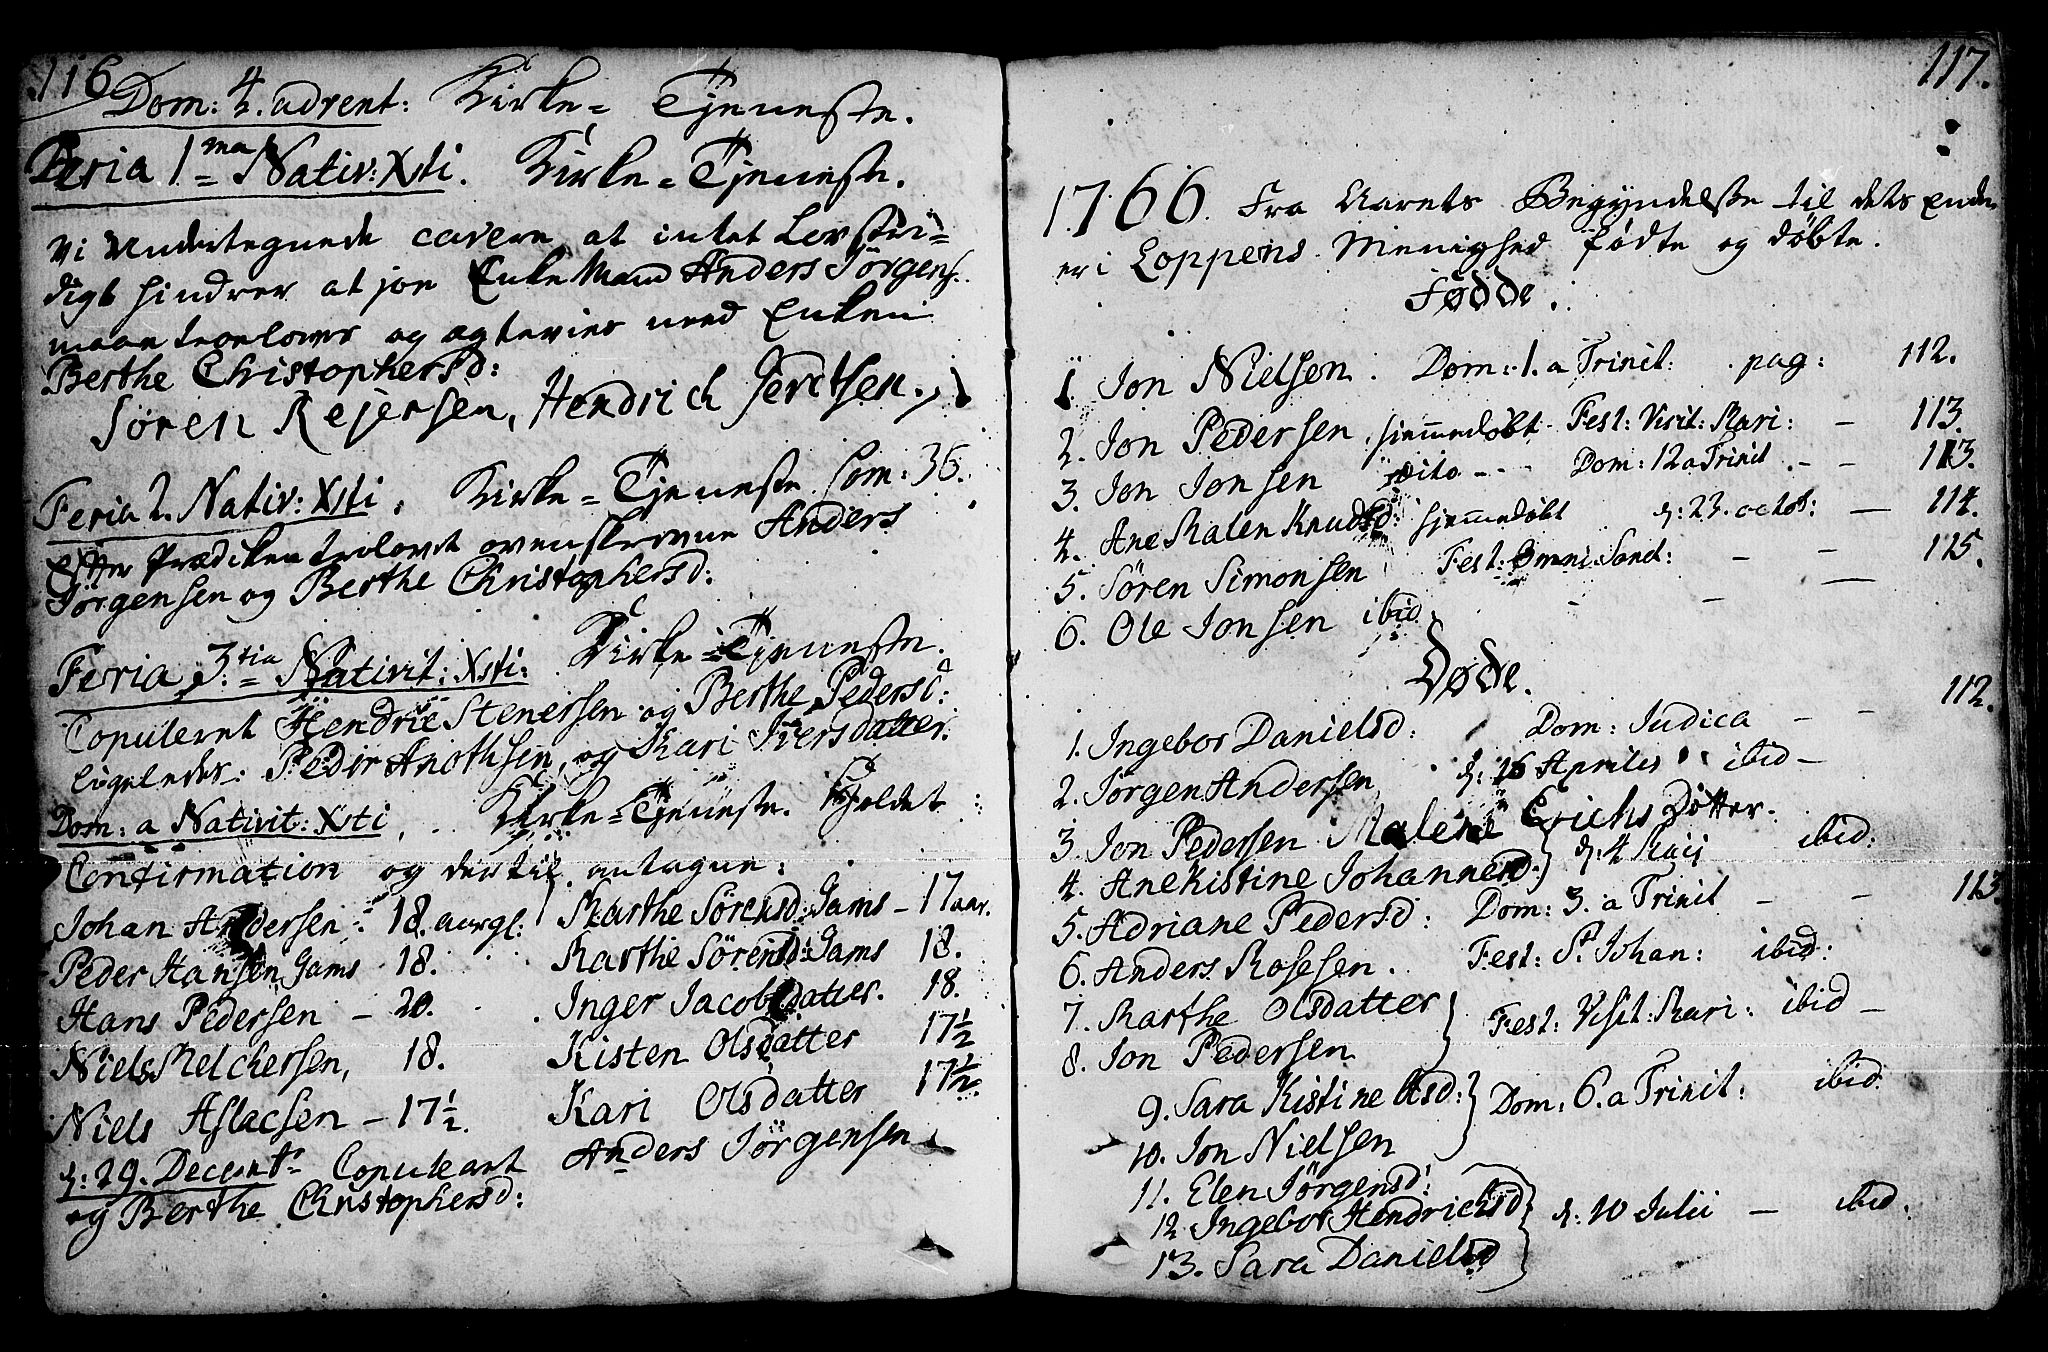 116
Dom: 4. advent: Kirke-Tjeneste.
Feria 1ma Nativ: Xsti. Kirke-Tjeneste.
Vi Undertegnede cavere at intet Lovstri-
digt hindrer at jon Enke Mand Anders Jörgens.
maae troeloves og ægtevies med Enken
Berthe Christophersd:
Sören Rejersen, Hendrich Gerdtsen.
Feria 2. Nativ: Xsti. Kirke-Tjeneste Com: 36.
Efter Prædiken trolovet ovenskrevne Anders
Jörgensen og Berthe Christophersd:
Feria 3tia Nativit: Xsti: Kirke-Tjeneste.
Copuleret Hendric Stenersen og Berthe Pedersd:
ligeledes: Peder Anothsen, og Kari Iversdatter.
Dom: a Nativit: Xsti, Kirke-Tjeneste. Holdet
Confirmation og dertil antagne:
Johan Andersen 18. aar gl:
Peder Hansen Gams 18.
Hans Pedersen - 20.
Niels Melchersen, 18.
Niels Aslacsen - 17½.
Marthe Sörensd: Gams - 17 aar.
Marthe Sörensd: Gams 18.
Inger Jacobsdatter. 18.
Kisten Olsdatter 17½
Kari Olsdatter 17½.
d: 29. Decembr Copuleart Anders Jörgensen
og Berthe Christophersd:
117.
1766. Fra Aarets Begyndelse til dets Ende
er i Loppens Menighed födte og döbte.
Födde.
1. Jon Nielsen. Dom: 1. a Trinit: pag: 112.
2. Jon Pedersen, hjemmedöbt. Fest: Visit: Mari: - 113.
3. Jon Jonsen dito - - Dom: 12 a Trinit. - - 113.
4. Ane Malen Knudsd: hjemmedöbt d: 23. octob: - 114.
5. Sören Simonsen Fest: Omni Sanct: - - 115.
6. Ole Jonsen ibid - - -
Döde.
1. Ingebor Danielsd: Dom: Judica - - 112.
2. Jörgen Andersen d: 16 Aprilis ibid -
3. Jon Pedersen Malene Erichs Dötter.
4. Ane Kistine Johannesd: d: 4 Maij ibid:
5. Adriane Pedersd: Dom: 3. a Trinit - - 113.
6. Anders Mosesen. Fest: St Johan: ibid:
7. Marthe Olsdatter Fest: Visit: Mari: ibid -
8. Jon Pedersen
9. Sara Kistine Olsd: Dom: 6. a Trinit: ibid.
10. Jon Nielsen
11. Elen Jörgensd:
12 Ingebor Hendrichsd d: 10 Julii - ibid.
13. Sara Danielsd